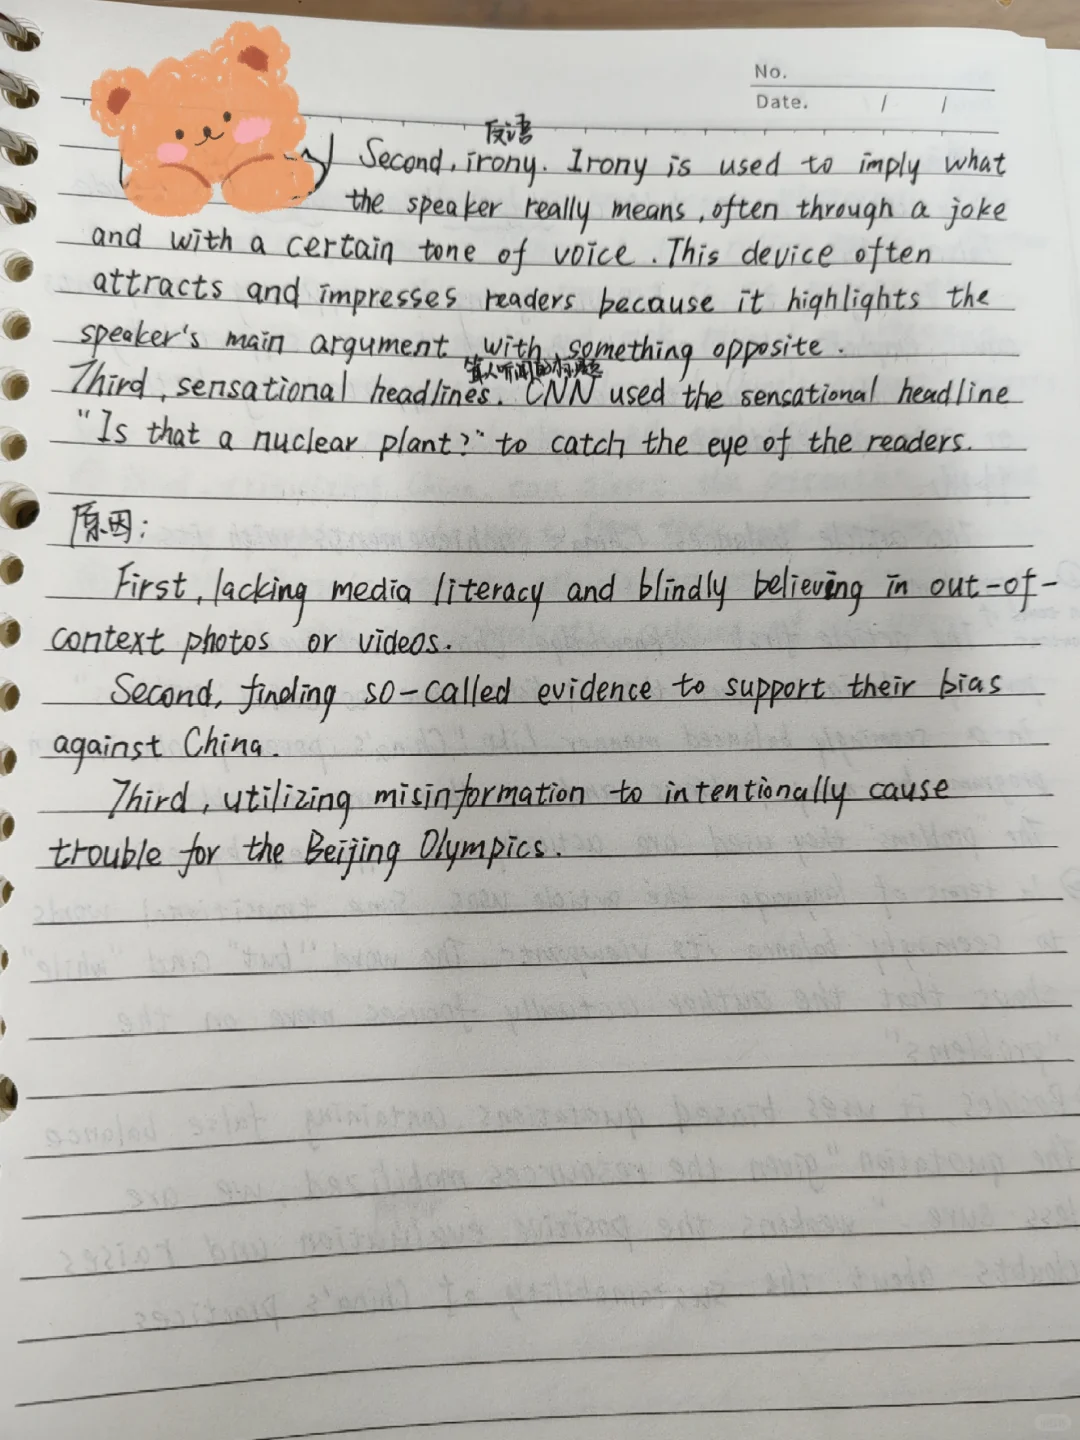 No.
Date. / /
反语
Second, irony. Irony is used to imply what
the speaker really means, often through a joke
and with a certain tone of voice. This device often
attracts and impresses readers because it highlights the
speaker's main argument with something opposite.
耸人听闻的标题
Third, sensational headlines. CNN used the sensational headline
"Is that a nuclear plant?" to catch the eye of the readers.
原因:
First, lacking media literacy and blindly believing in out-of-
context photos or videos.
Second, finding so-called evidence to support their bias
against China.
Third, utilizing misinformation to intentionally cause
trouble for the Beijing Olympics.